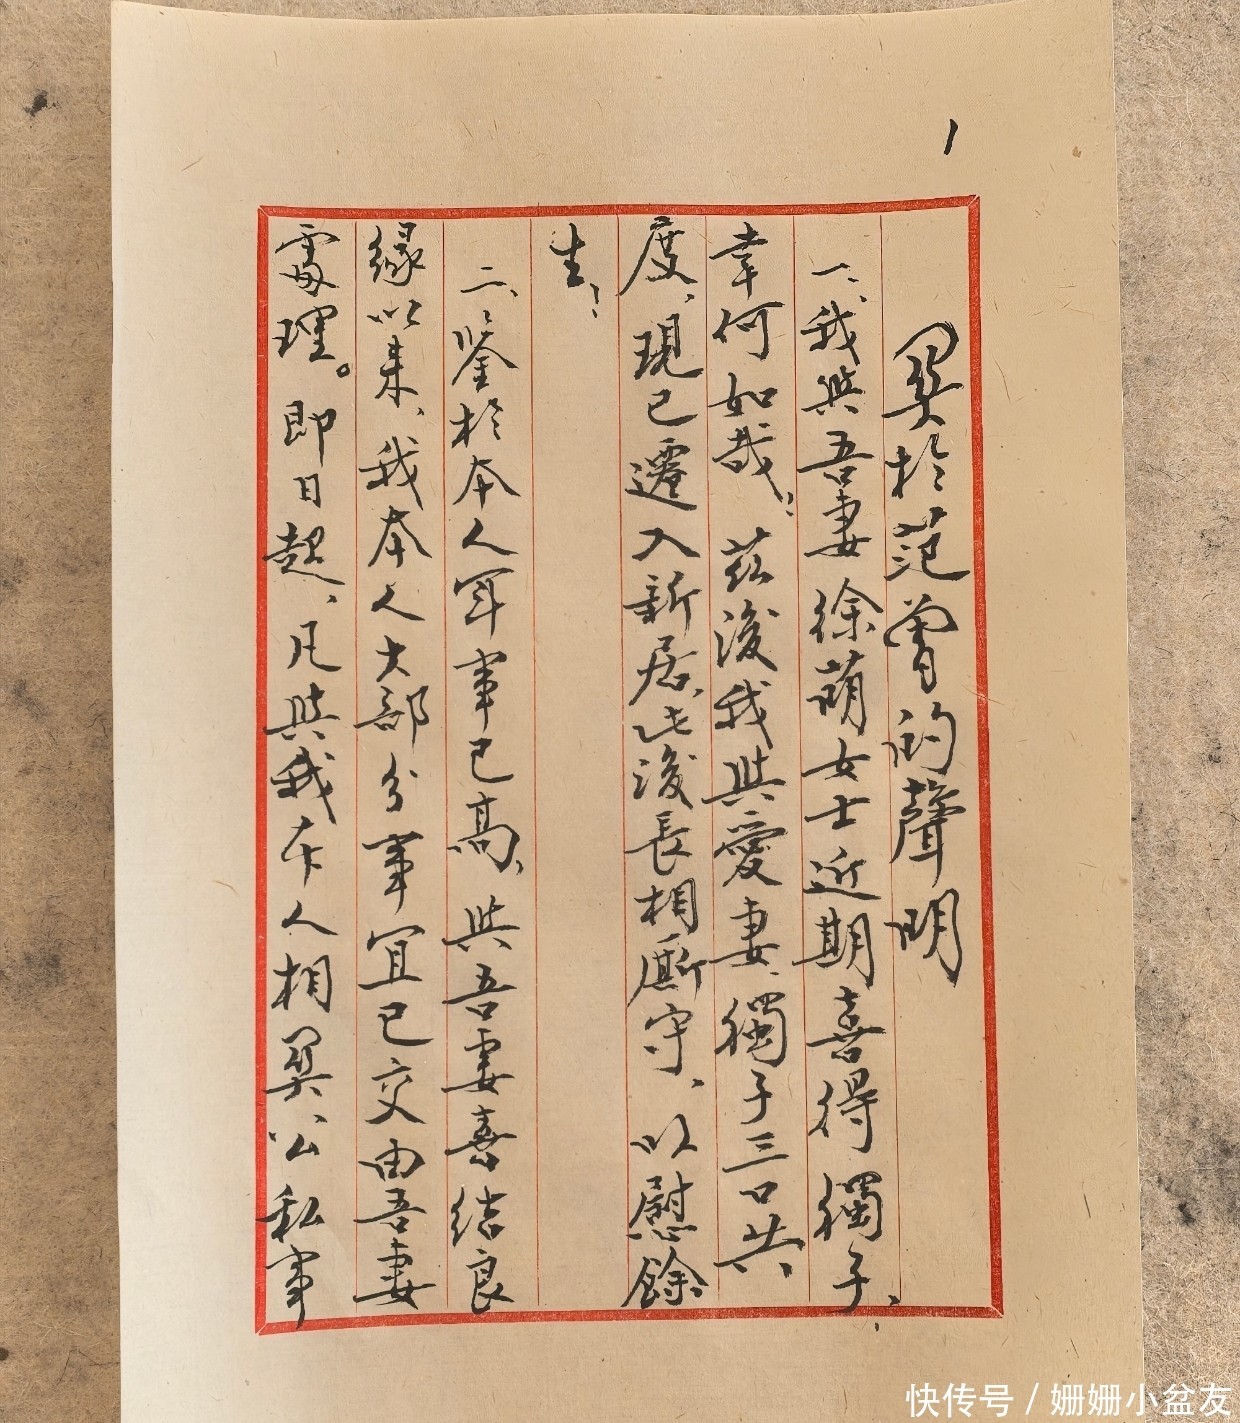 1
關於范曾的聲明
一、我與吾妻徐萌女士近期喜得獨子，
幸何如哉！茲後我與愛妻、獨子三口共
度，現已遷入新居，此後長相廝守，以慰餘
生！
二、鑒於本人年事已高，與吾妻喜結良
緣以來，我本人大部分事宜已交由吾妻
處理。即日起，凡與我本人相關公私事
快传号 / 姗姗小盆友